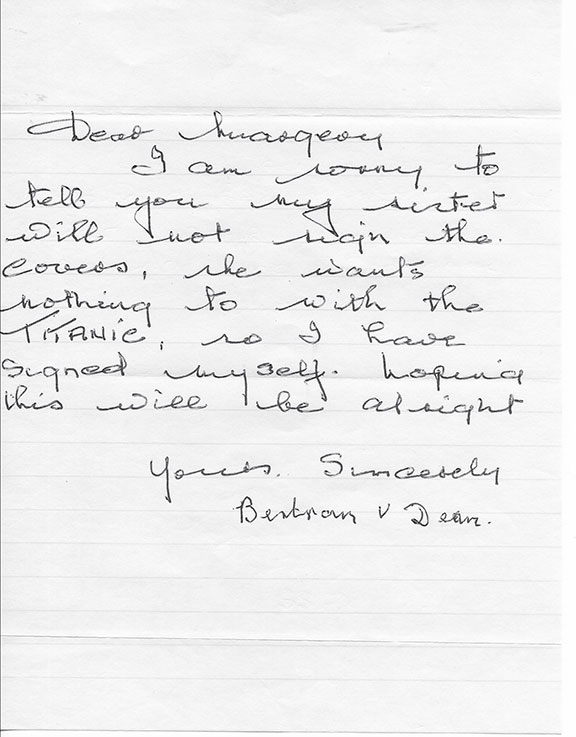 Dear
I am sorry to
tell you my sister
will not sign the.
Covers, she wants
nothing to with the
TITANIC, so I have
signed myself. hoping
this will be alright
Yours. Sincerely
Bertram V Dean.